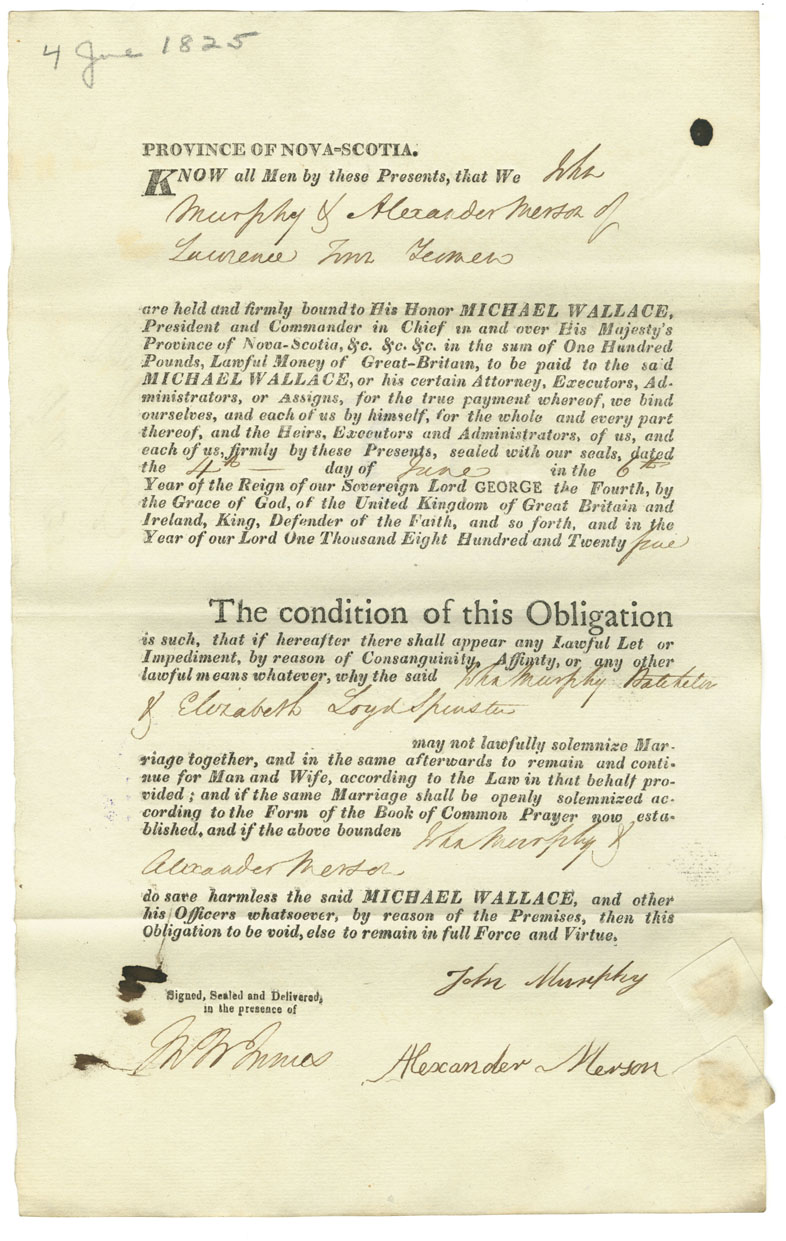 4 June 1825
PROVINCE OF NOVA-SCOTIA.
KNOW all Men by these Presents, that We John
Murphy & Alexander Merson of
Lawrence Town Yeomen
are held and firmly bound to His Honor MICHAEL WALLACE,
President and Commander in Chief in and over His Majesty's
Province of Nova-Scotia, &c. &c. &c. in the sum of One Hundred
Pounds, Lawful Money of Great-Britain, to be paid to the said
MICHAEL WALLACE, or his certain Attorney, Executors, Ad-
ministrators, or Assigns, for the true payment whereof, we bind
ourselves, and each of us by himself, for the whole and every part
thereof, and the Heirs, Executors and Administrators, of us, and
each of us, firmly by these Presents, sealed with our seals, dated
the 4th day of June in the 6th
Year of the Reign of our Sovereign Lord GEORGE the Fourth, by
the Grace of God, of the United Kingdom of Great Britain and
Ireland, King, Defender of the Faith, and so forth, and in the
Year of our Lord One Thousand Eight Hundred and Twenty five
The condition of this Obligation
is such, that if hereafter there shall appear any Lawful Let or
Impediment, by reason of Consanguinity, Affinity, or any other
lawful means whatever, why the said John Murphy Batchelor
& Elizabeth Loyd Spinster
may not lawfully solemnize Mar-
riage together, and in the same afterwards to remain and conti-
nue for Man and Wife, according to the Law in that behalf pro-
vided ; and if the same Marriage shall be openly solemnized ac-
cording to the Form of the Book of Common Prayer now esta-
blished, and if the above bounden John Murphy &
Alexander Merson
do save harmless the said MICHAEL WALLACE, and other
his Officers whatsoever, by reason of the Premises, then this
Obligation to be void, else to remain in full Force and Virtue.
John Murphy
Signed, Sealed and Delivered,
in the presence of
Innes
Alexander Merson